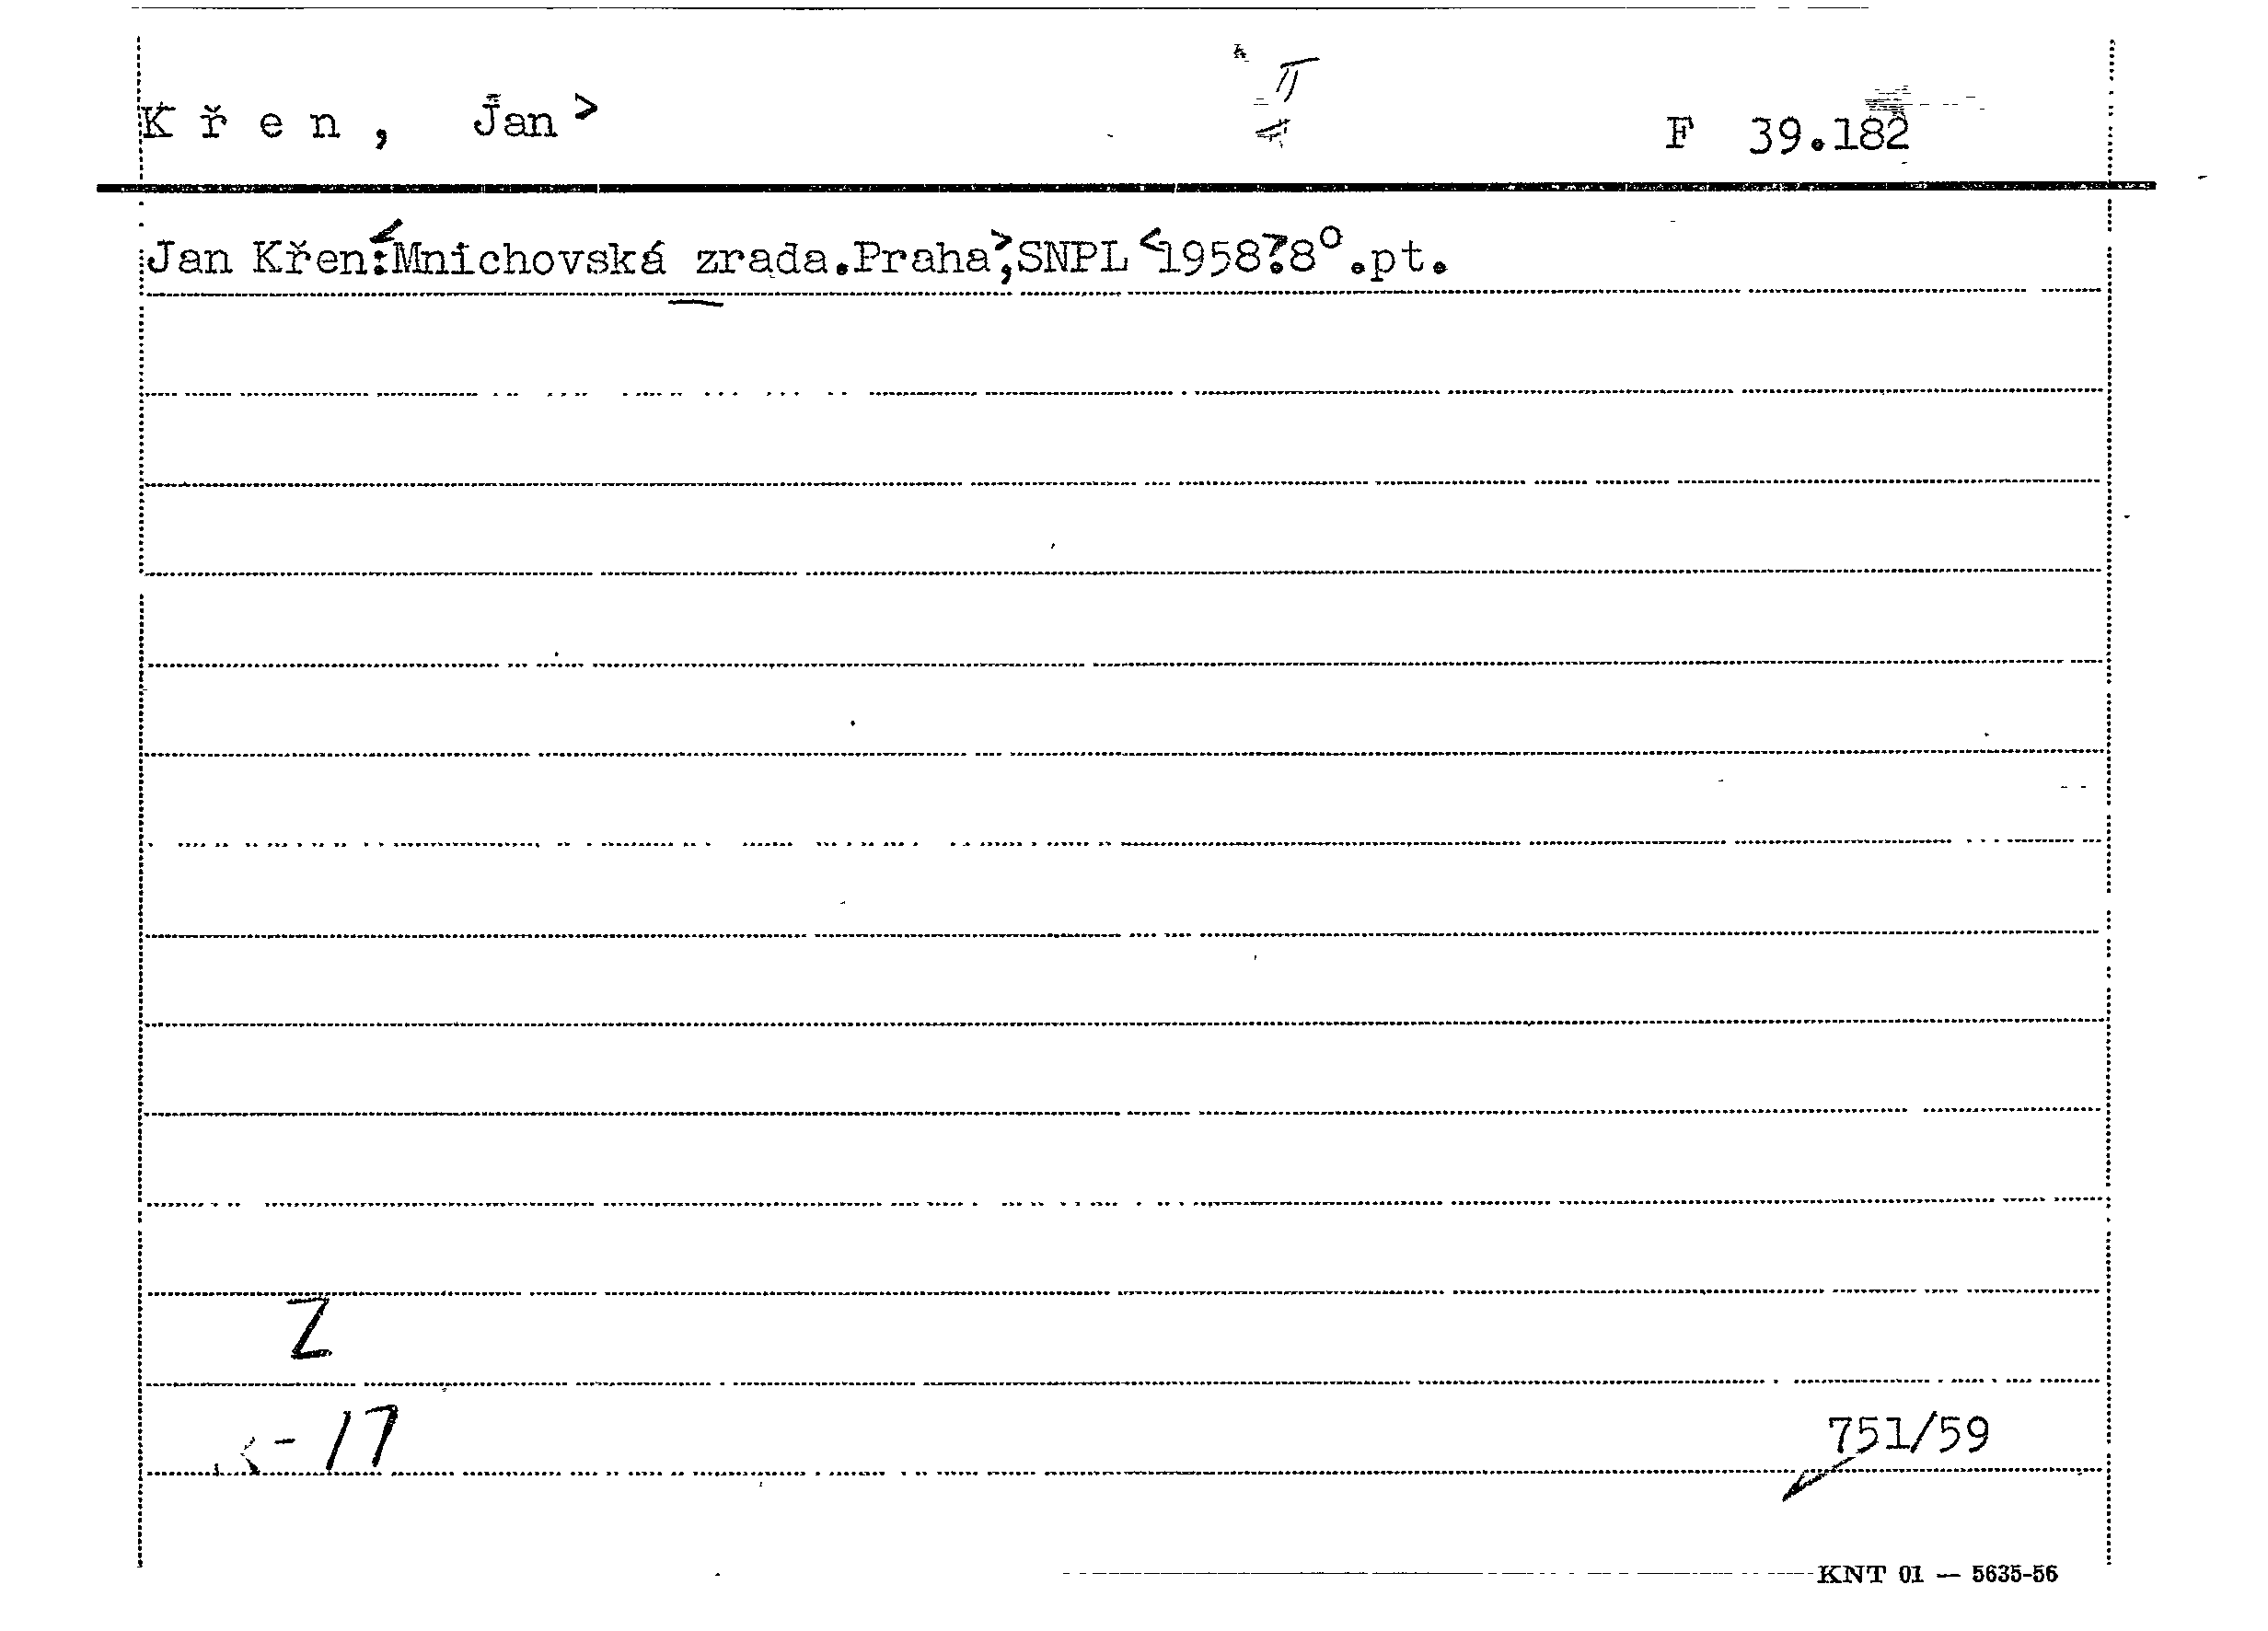 K ř e n ,   Jan >   II   F 39.182
Jan Křen:Mnichovská zrada.Praha>,SNPL <1958?.8°.pt.
Z
- 17   751/59
KNT 01 — 5635-56